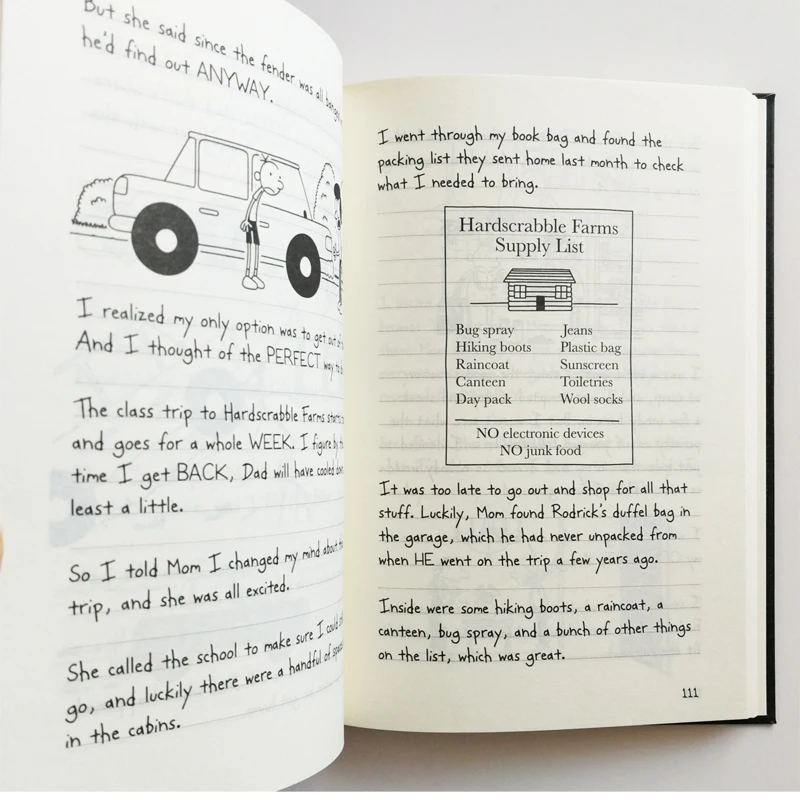 But she said since the fender was all banged
he'd find out ANYWAY.
I realized my only option was to get out of
And I thought of the PERFECT way to
The class trip to Hardscrabble Farms starts
and goes for a whole WEEK. I figure by
time I get BACK, Dad will have cooled down
least a little.
So I told Mom I changed my mind about
trip, and she was all excited.
She called the school to make sure I could
go, and luckily there were a handful of
in the cabins.
I went through my book bag and found the
packing list they sent home last month to check
what I needed to bring.
Hardscrabble Farms
Supply List
Bug spray Jeans
Hiking boots Plastic bag
Raincoat Sunscreen
Canteen Toiletries
Day pack Wool socks
NO electronic devices
NO junk food
It was too late to go out and shop for all that
stuff. Luckily, Mom found Rodrick's duffel bag in
the garage, which he had never unpacked from
when HE went on the trip a few years ago.
Inside were some hiking boots, a raincoat, a
canteen, bug spray, and a bunch of other things
on the list, which was great.
111